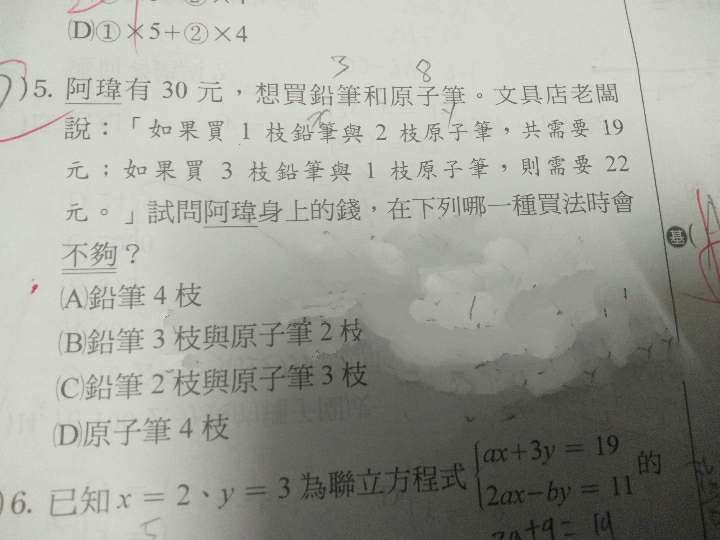 (D)①×5+②×4
3 8
5. 阿瑋有 30 元，想買鉛筆和原子筆。文具店老闆
x y
說：「如果買 1 枝鉛筆與 2 枝原子筆，共需要 19
元；如果買 3 枝鉛筆與 1 枝原子筆，則需要 22
元。」試問阿瑋身上的錢，在下列哪一種買法時會
基
不夠？
(A)鉛筆 4 枝
(B)鉛筆 3 枝與原子筆 2 枝
(C)鉛筆 2 枝與原子筆 3 枝
(D)原子筆 4 枝
6. 已知 x = 2、y = 3 為聯立方程式 ax+3y = 19 的
2ax−by = 11
2a+9= 19